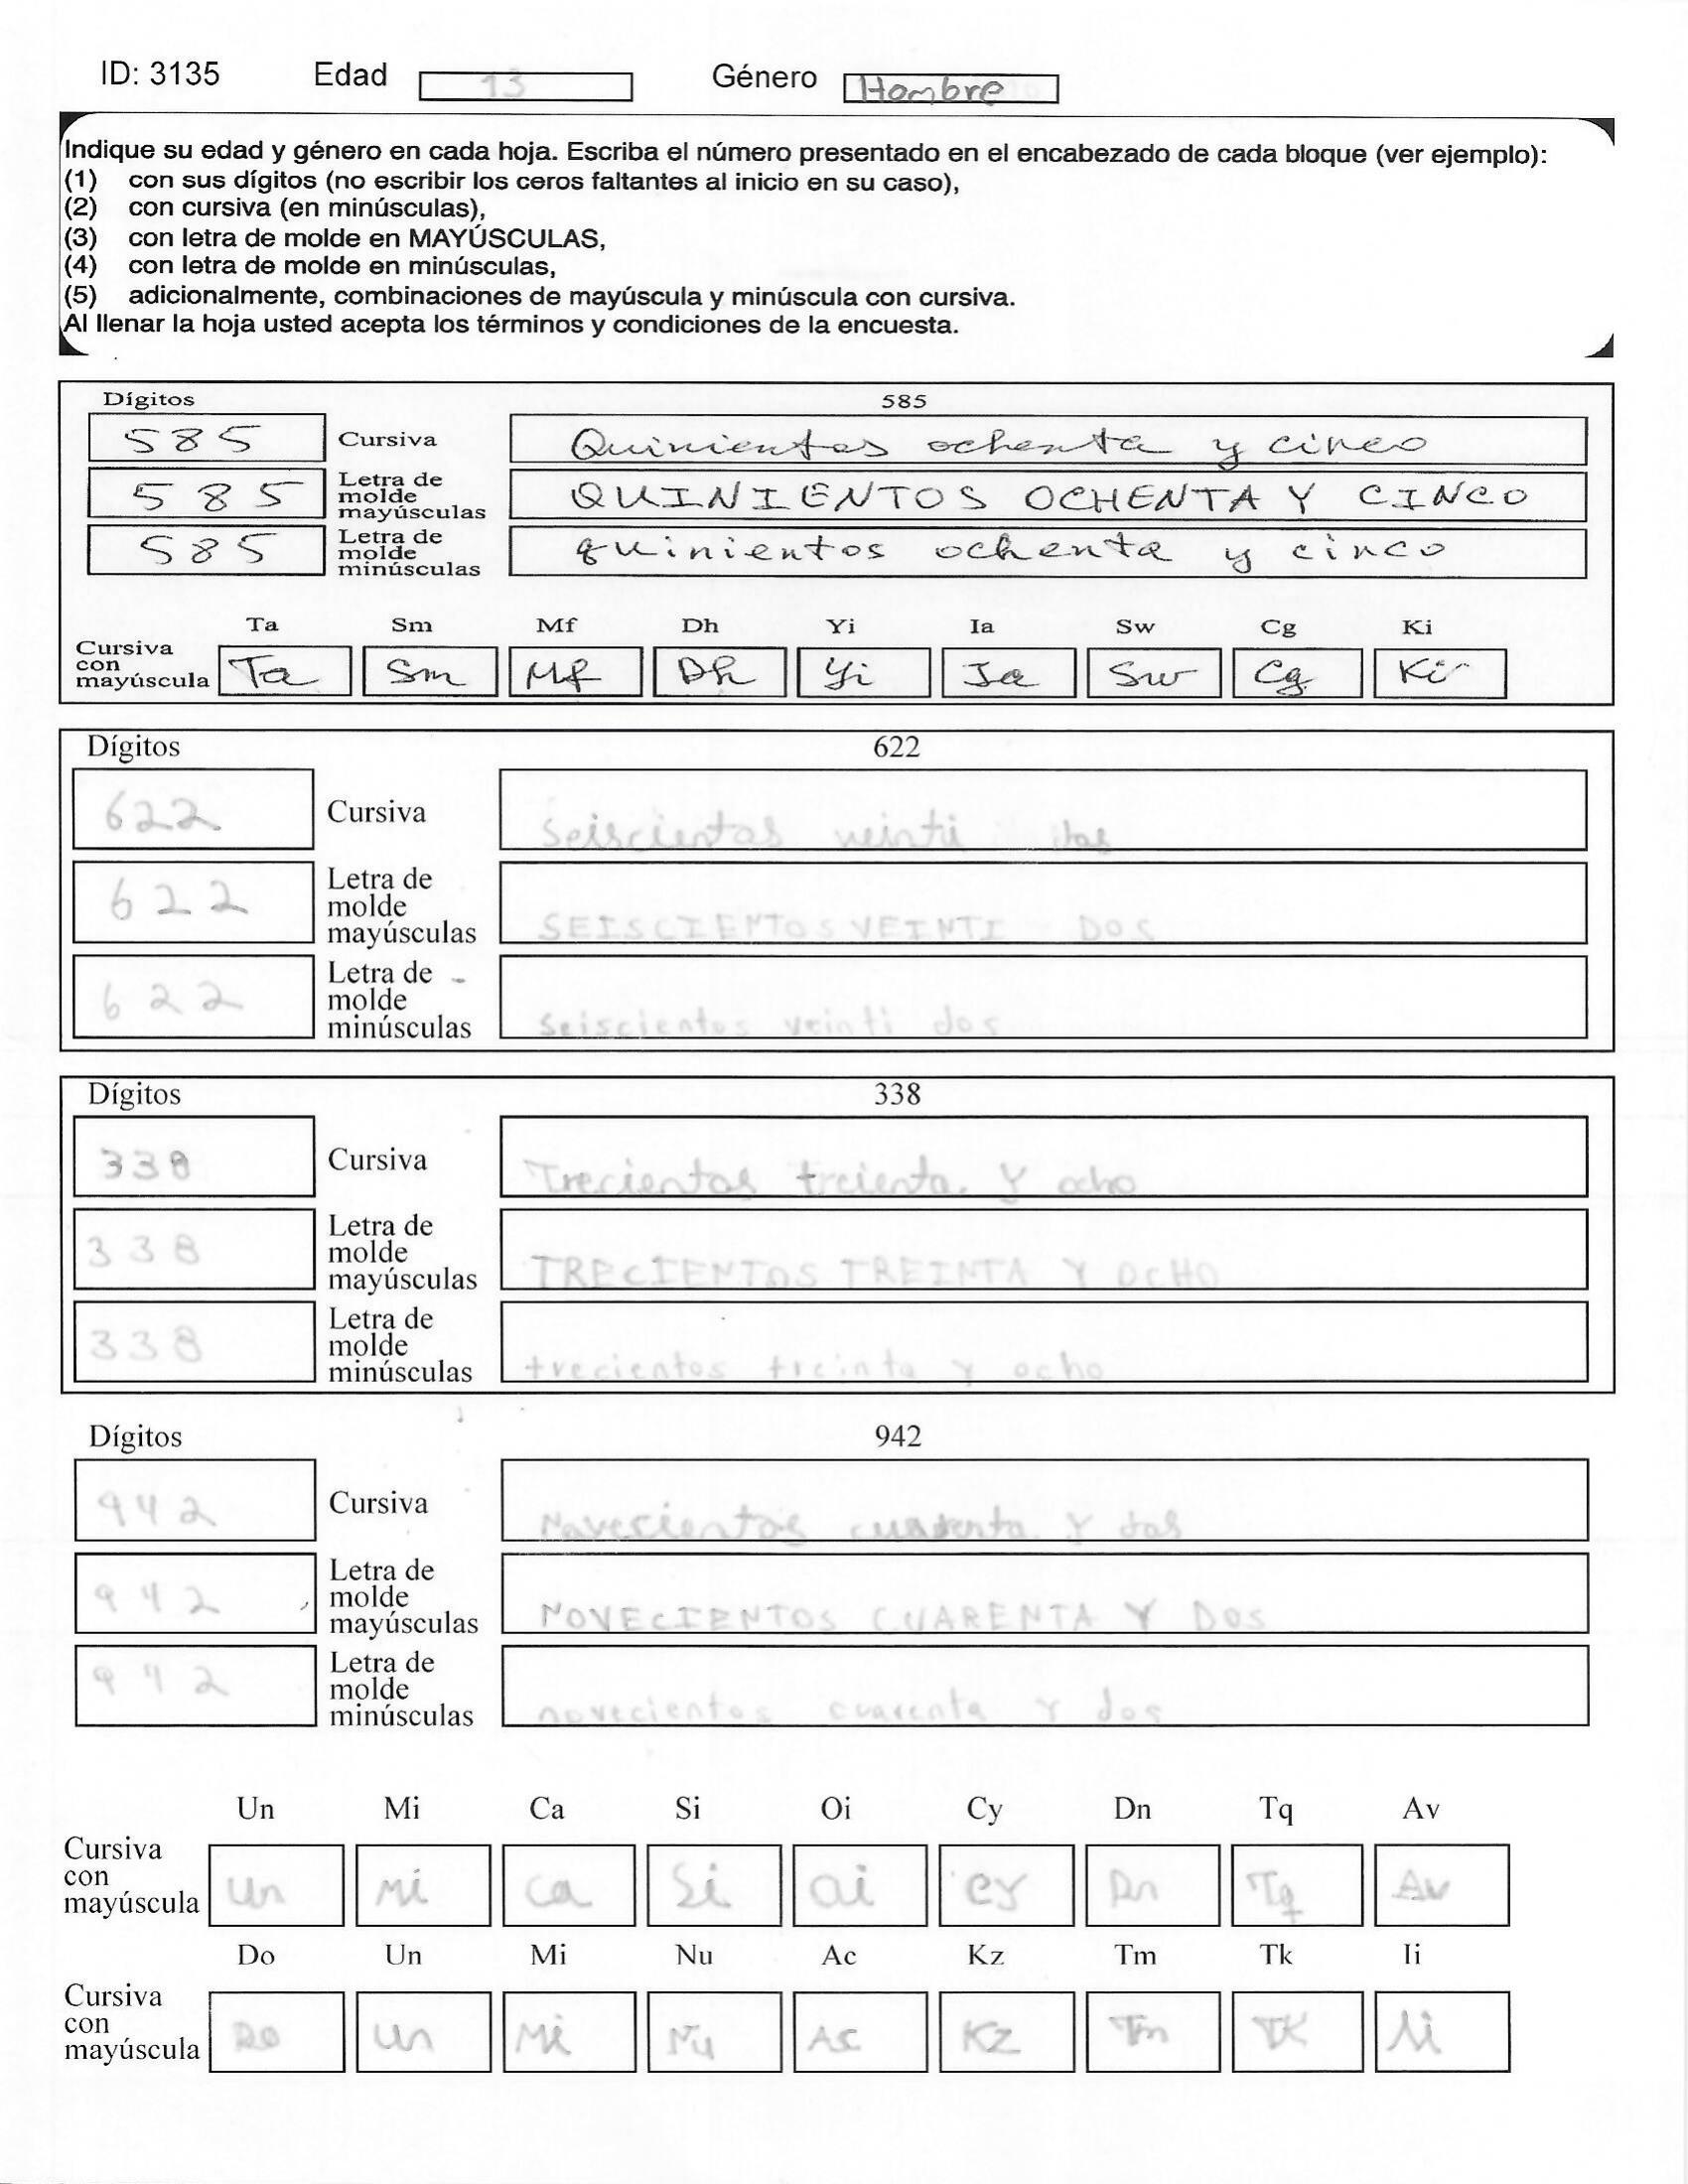 ID: 3135 Edad 13 Género Hombre
Indique su edad y género en cada hoja. Escriba el número presentado en el encabezado de cada bloque (ver ejemplo):
(1) con sus dígitos (no escribir los ceros faltantes al inicio en su caso),
(2) con cursiva (en minúsculas),
(3) con letra de molde en MAYÚSCULAS,
(4) con letra de molde en minúsculas,
(5) adicionalmente, combinaciones de mayúscula y minúscula con cursiva.
Al llenar la hoja usted acepta los términos y condiciones de la encuesta.
Dígitos 585
585 Cursiva Quinientos ochenta y cinco
585 Letra de molde mayúsculas QUINIENTOS OCHENTA Y CINCO
585 Letra de molde minúsculas quinientos ochenta y cinco
Ta Sm Mf Dh Yi Ia Sw Cg Ki
Cursiva con mayúscula Ta Sm Mf Dh Yi Ia Sw Cg Ki
Dígitos 622
622 Cursiva Seiscientos veinti dos
622 Letra de molde mayúsculas SEISCIENTOS VEINTI DOS
622 Letra de molde minúsculas seiscientos veinti dos
Dígitos 338
338 Cursiva Trecientos treienta. Y ocho
338 Letra de molde mayúsculas TRECIENTOS TREINTA Y OCHO
338 Letra de molde minúsculas trecientos treinta y ocho
Dígitos 942
942 Cursiva Novecientos cuarenta Y dos
942 Letra de molde mayúsculas NOVECIENTOS CUARENTA Y DOS
942 Letra de molde minúsculas novecientos cuarenta Y dos
Un Mi Ca Si Oi Cy Dn Tq Av
Cursiva con mayúscula Un Mi Ca Si Oi Cy Dn Tq Av
Do Un Mi Nu Ac Kz Tm Tk Ii
Cursiva con mayúscula Do Un Mi Nu Ac Kz Tm TK Ii